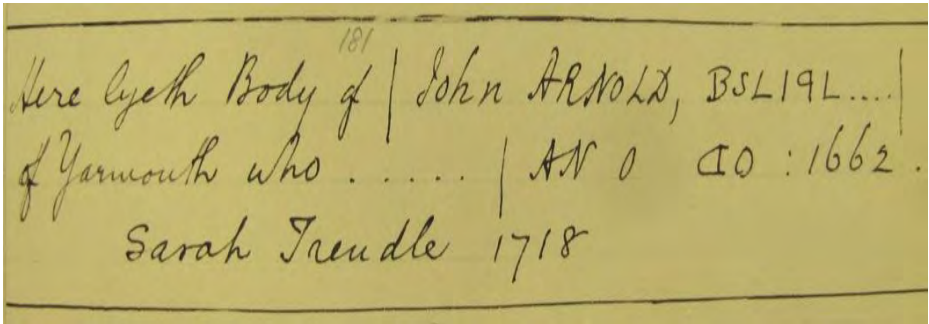 181
Here lyeth Body of | John ARNOLD, BSL19L....|
of Yarmouth who ...... | AN O DO : 1662 .
Sarah Trendle 1718